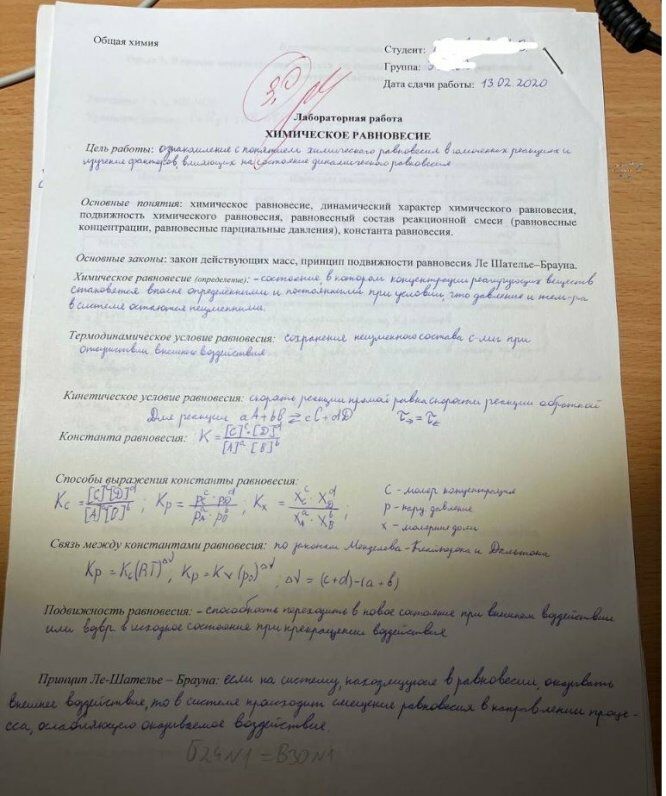 Общая химия
Студент:
Группа:
Дата сдачи работы: 13.02.2020
3,0
Лабораторная работа
ХИМИЧЕСКОЕ РАВНОВЕСИЕ
Цель работы: ознакомление с понятием химического равновесия в химических реакциях и
изучение факторов, влияющих на состояние динамического равновесия
Основные понятия: химическое равновесие, динамический характер химического равновесия,
подвижность химического равновесия, равновесный состав реакционной смеси (равновесные
концентрации, равновесные парциальные давления), константа равновесия.
Основные законы: закон действующих масс, принцип подвижности равновесия Ле Шателье–Брауна.
Химическое равновесие (определение): - состояние в котором концентрации реагирующих веществ
становятся вполне определёнными и постоянными при условии, что давление и тем-ра
в системе остаются неизменными.
Термодинамическое условие равновесия: сохранение неизменного состава с-мы при
отсутствии внешнего воздействия
Кинетическое условие равновесия: скорость реакции прямой равна скорости реакции обратной
Для реакции aA+bB ⇄ cC+dD
Константа равновесия: K = [C]^c·[D]^d / [A]^a·[B]^b
Способы выражения константы равновесия:
Kc = [C]^c[D]^d / [A]^a[B]^b ; Kp = pC^c · pD^d / pA^a · pB^b ; Kx = XC^c · XD^d / XA^a · XB^b ;
C - моляр концентрация
p - парц давление
x - молярные доли
Связь между константами равновесия: по законам Менделеева-Клапейрона и Дальтона
Kp = Kc(RT)^Δν, Kp = Kx(p0)^Δν ; Δν = (c+d)-(a+b)
Подвижность равновесия: - способность переходить в новое состояние при внешнем воздействии
или возвр. в исходное состояние при прекращении воздействия
Принцип Ле-Шателье – Брауна: если на систему, находящуюся в равновесии, оказывать
внешнее воздействие, то в системе происходит смещение равновесия в направлении проце-
сса, ослабляющего оказываемое воздействие.